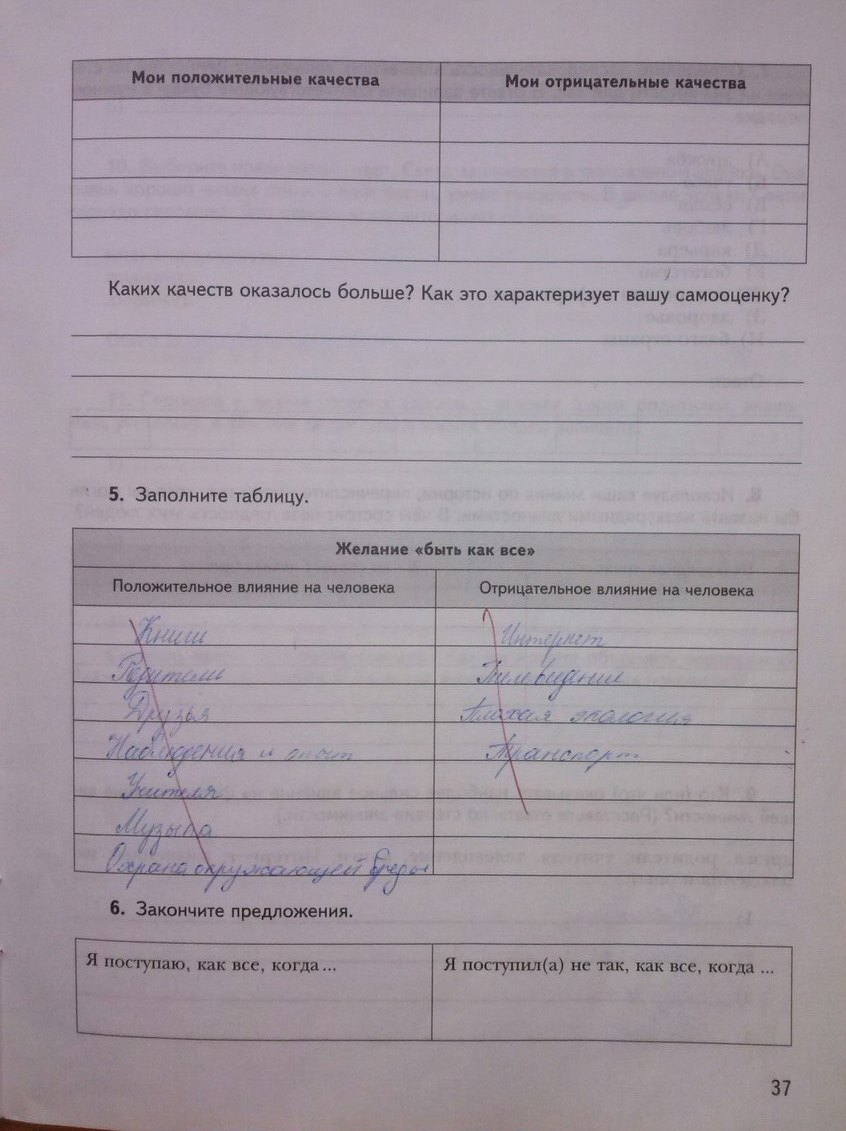 Мои положительные качества Мои отрицательные качества
Каких качеств оказалось больше? Как это характеризует вашу самооценку?
5. Заполните таблицу.
Желание «быть как все»
Положительное влияние на человека Отрицательное влияние на человека
Книги Интернет
Родители Телевидение
Друзья Плохая экология
Наблюдения и опыт Транспорт
Учителя
Музыка
Охрана окружающей среды
6. Закончите предложения.
Я поступаю, как все, когда ... Я поступил(а) не так, как все, когда ...
37